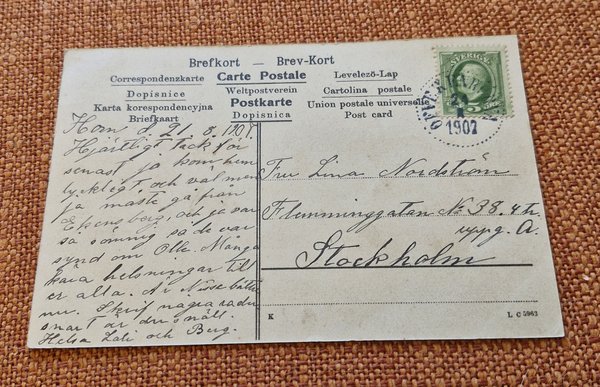 Brefkort — Brev-Kort
Correspondenzkarte Carte Postale Levelező-Lap
Dopisnice Weltpostverein Cartolina postale
Karta korespondencyjna Postkarte Union postale universelle
Briefkaart Dopisnica Post card
SVERIGE
5 ÖRE
1907
d. 21. 8. 1907.
Hjärtligt tack för
senast ja kom hem
lyckligt och väl men
ja måste gå från
Ekensberg, och ja var
så sömnig så de var
synd om Olle. Många
kära helsningar till
er alla. Är Nisse bättre
nu. Skrif några rader
snart är du snäll.
Helsa Lati och Berg.
Fru Lina Nordström
Flemminggatan No 38. 4 tr.
uppg. A.
Stockholm
K
L C 5963